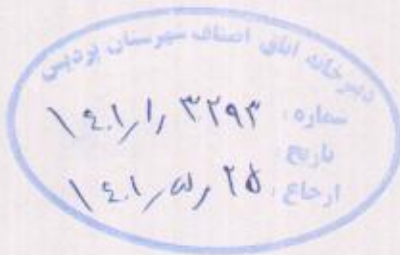 دبیرخانه اتاق اصناف شهرستان پردیس
شماره: ۱۴۰۱/۱/۳۲۹۳
تاریخ:
ارجاع: ۱۴۰۱/۵/۲۵